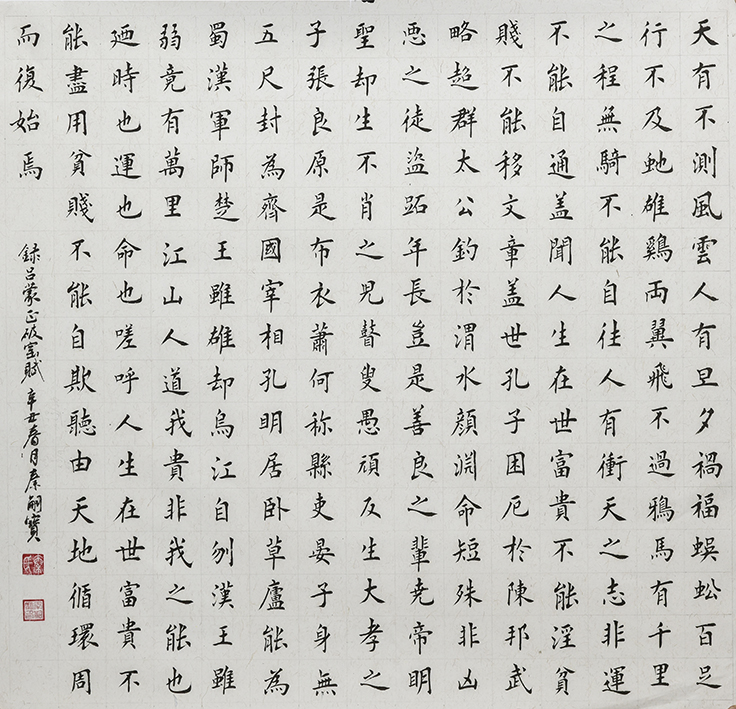 天有不測風雲人有旦夕禍福蜈蚣百足
行不及虵雄鷄兩翼飛不過鴉馬有千里
之程無騎不能自往人有衝天之志非運
不能自通盖聞人生在世富貴不能淫貧
賤不能移文章盖世孔子困厄於陳邦武
略超群太公釣於渭水顔淵命短殊非凶
悪之徒盜跖年長豈是善良之輩尭帝明
聖却生不肖之児瞽叟愚頑反生大孝之
子張良原是布衣蕭何称縣吏晏子身無
五尺封為齊國宰相孔明居卧草廬能為
蜀漢軍師楚王雖雄却烏江自刎漢王雖
弱竟有萬里江山人道我貴非我之能也
廼時也運也命也嗟呼人生在世富貴不
能盡用貧賤不能自欺聽由天地循環周
而復始焉
録吕蒙正破窑賦辛丑春月秦嗣寶